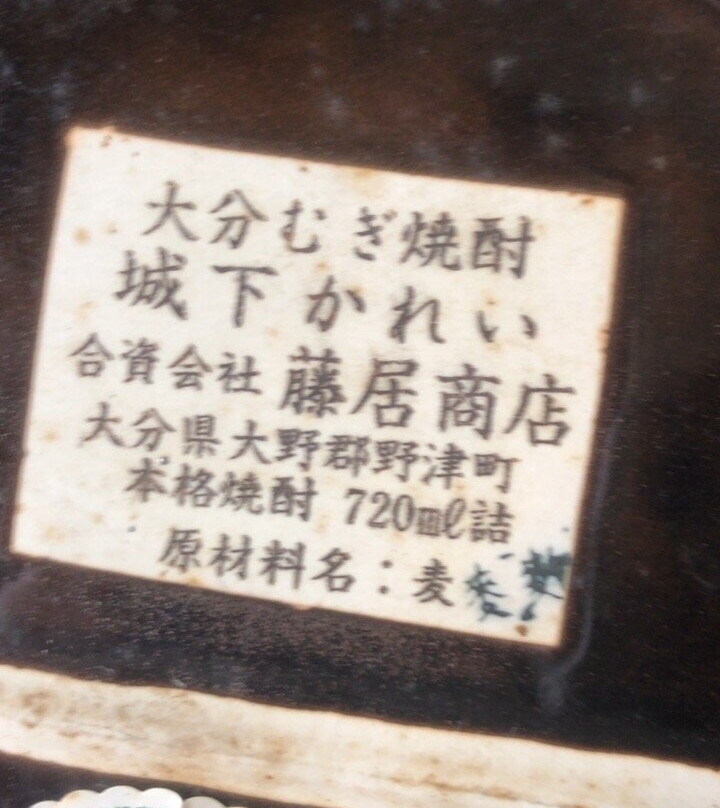 大分むぎ焼酎
城下かれい
合資会社 藤居商店
大分県大野郡野津町
本格焼酎 720ml詰
原材料名：麦